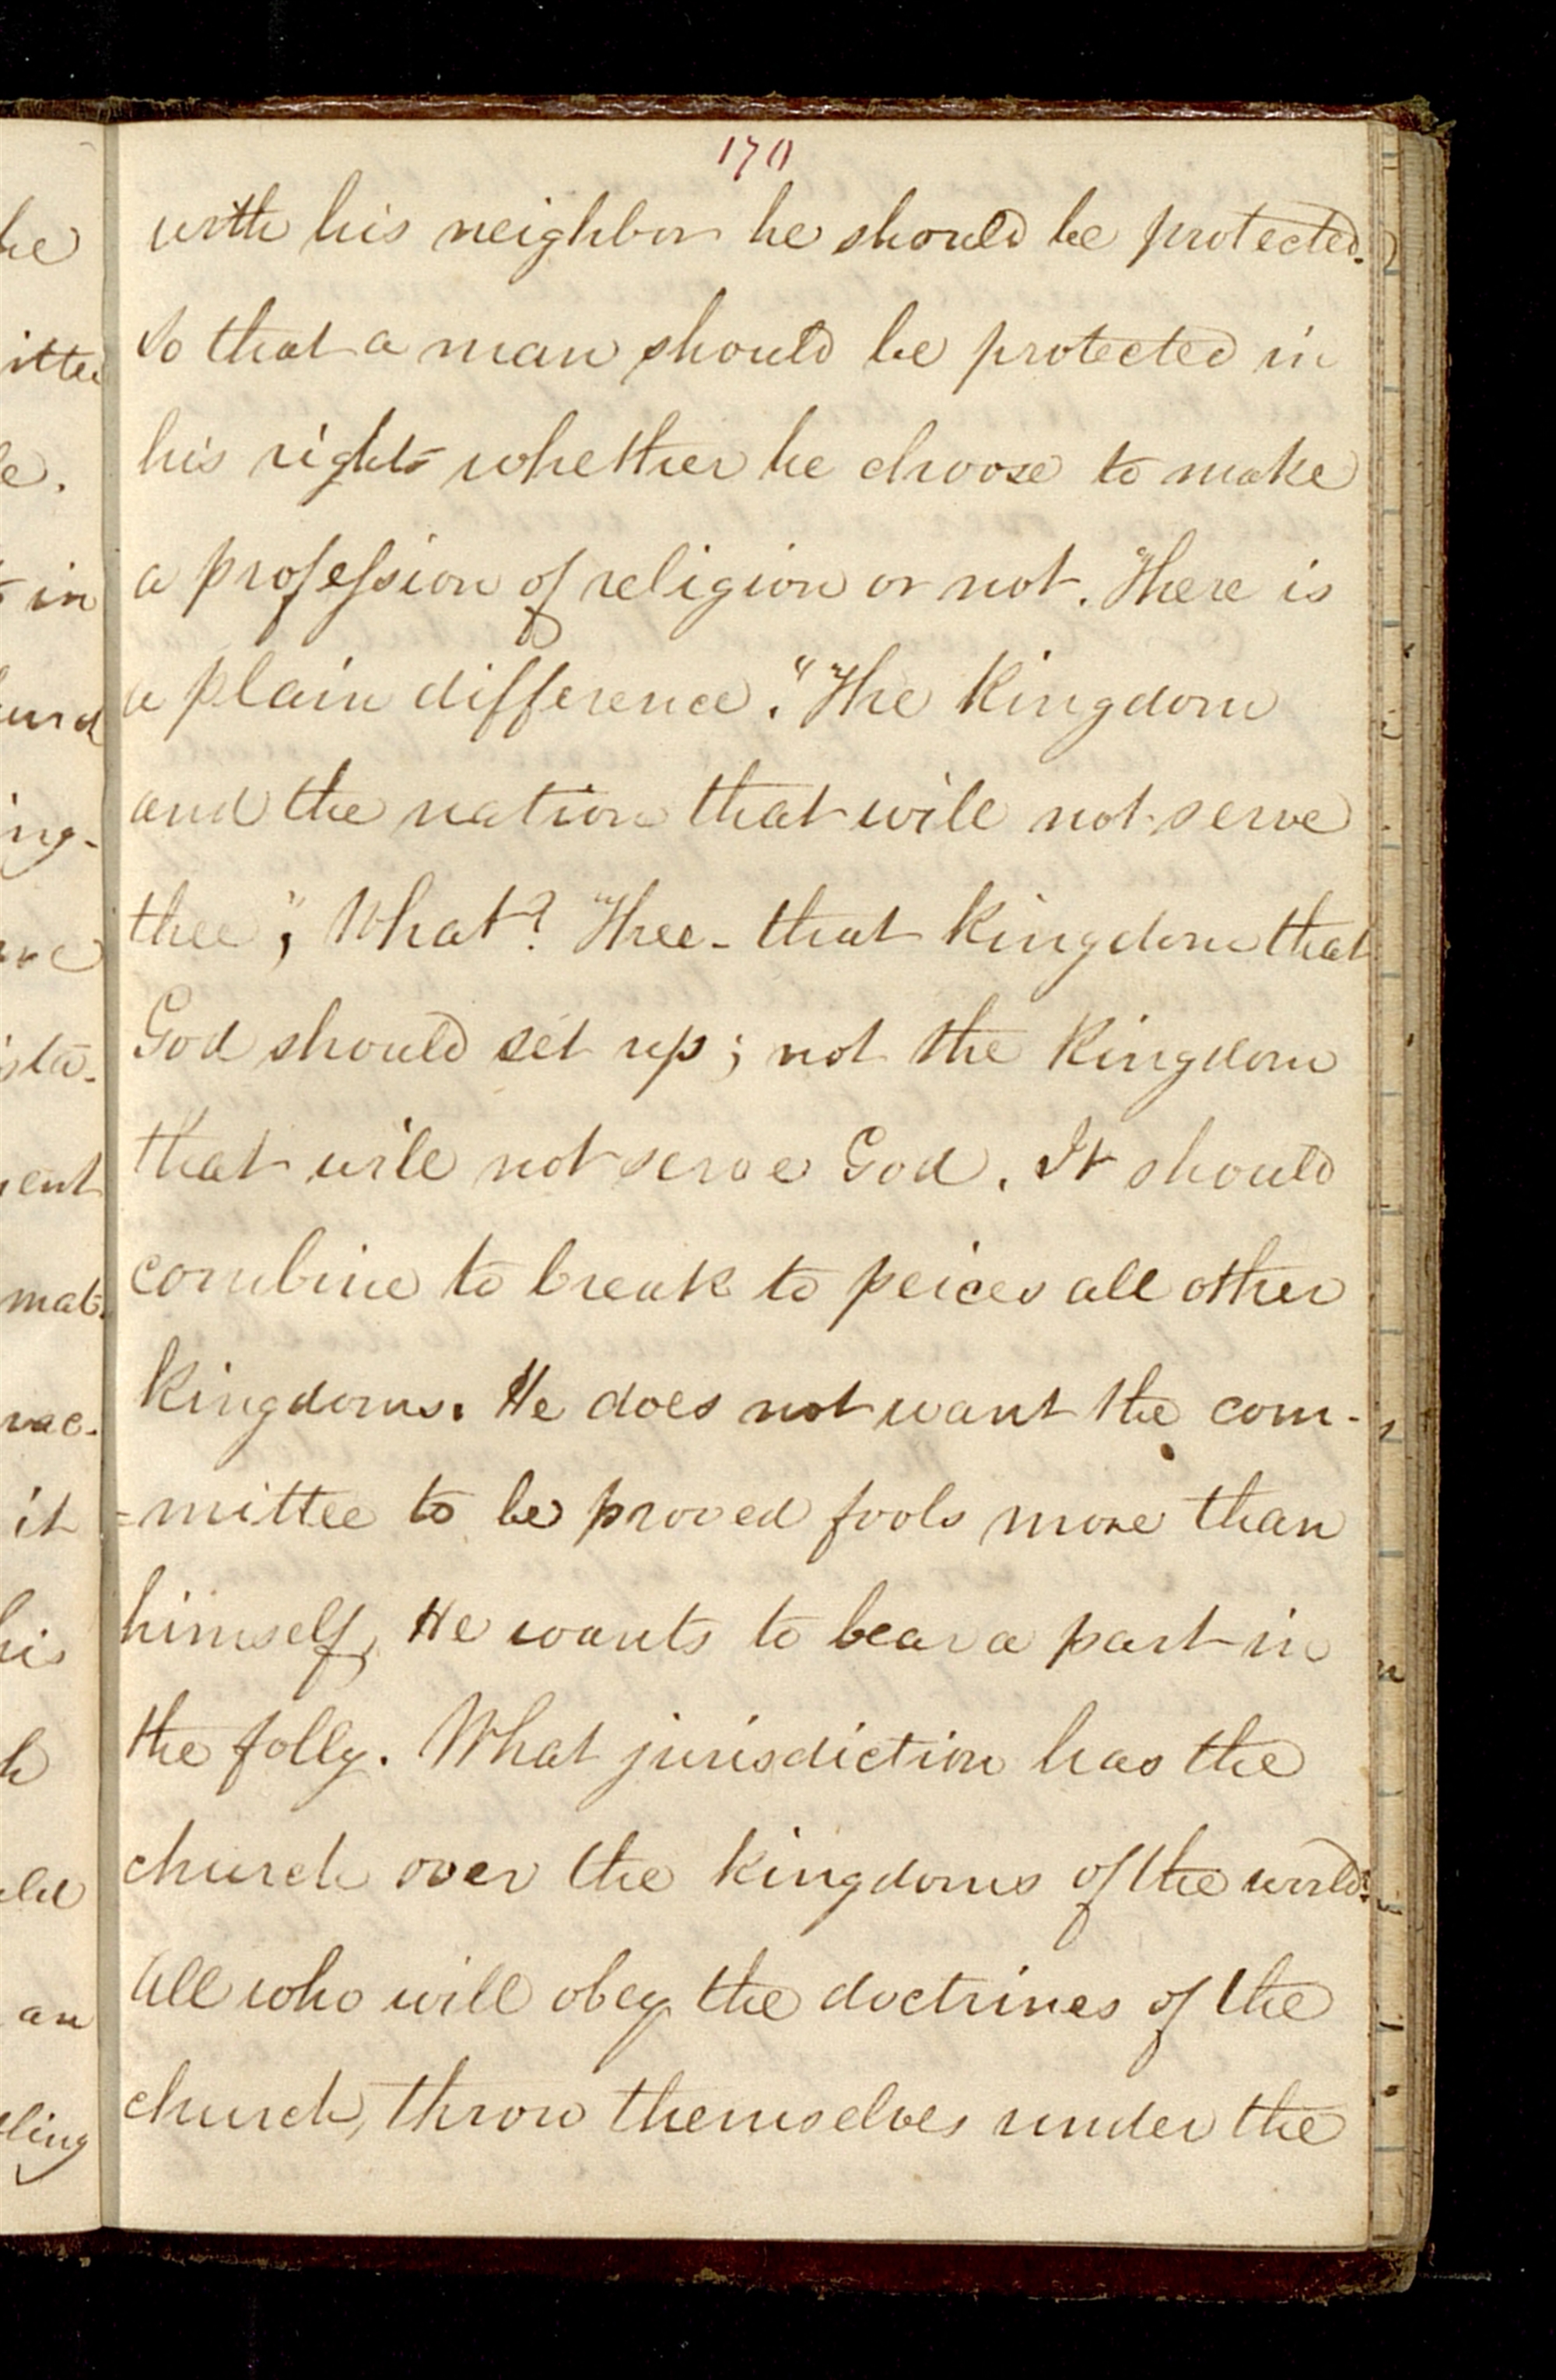 170
with his neighbor he should be protected.
So that a man should be protected in
his rights whether he choose to make
a profession of religion or not. There is
a plain difference. "The Kingdom
and the nation that will not serve
thee"; What? Thee - that Kingdom that
God should set up; not the Kingdom
that will not serve God. It should
combine to break to peices all other
Kingdoms. He does not want the com-
=mittee to be proved fools more than
himself, He wants to bear a part in
the folly. What jurisdiction has the
church over the kingdoms of the world?
All who will obey the doctrines of the
church, throw themselves under the